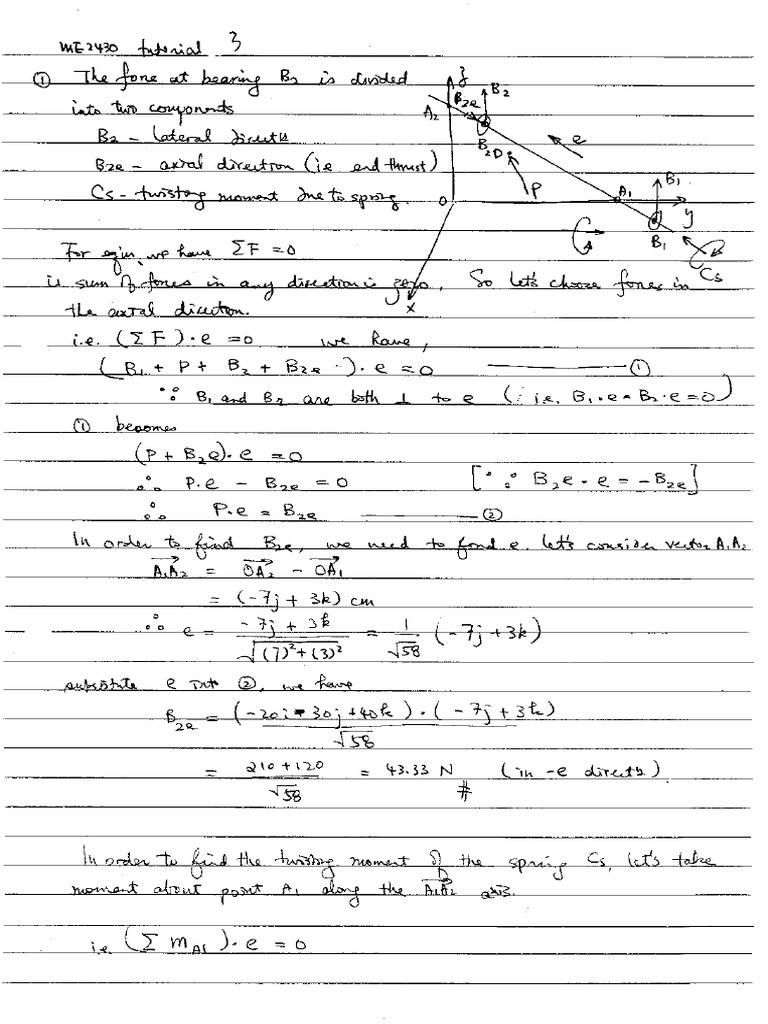 ME2430 tutorial 3
① The force at bearing B2 is divided
into two components
B2 - lateral direct'n
B2e - axial direction (ie end thrust)
Cs - twisting moment due to spring.
z
A2
B2e
B2
B2
D
e
P
A1
B1
O
y
B1
Cs
x
For eqm, we have ΣF = 0
ie sum of forces in any direction is zero. So let's choose forces in
the axial direction.
i.e. (ΣF)·e = 0 we have,
(B1 + P + B2 + B2e)·e = 0 ——— ①
∵ B1 and B2 are both ⊥ to e (∵ i.e. B1·e = B2·e = 0)
① becomes
(P + B2e)·e = 0
∴ P·e - B2e = 0 [∵ B2e·e = -B2e]
∴ P·e = B2e ——— ②
In order to find B2e, we need to fond e. let's consider vector A1A2
A1A2 = OA2 - OA1
= (-7j + 3k) cm
∴ e = (-7j + 3k) / √((7)²+(3)²) = 1/√58 (-7j + 3k)
substitute e into ②, we have
B2e = (-20i - 30j + 40k)·(-7j + 3k) / √58
= (210 + 120) / √58 = 43.33 N (in -e direct'n)
#
In order to find the twisting moment of the spring Cs, let's take
moment about point A1 along the A1A2 axis.
i.e. (Σ MA1)·e = 0